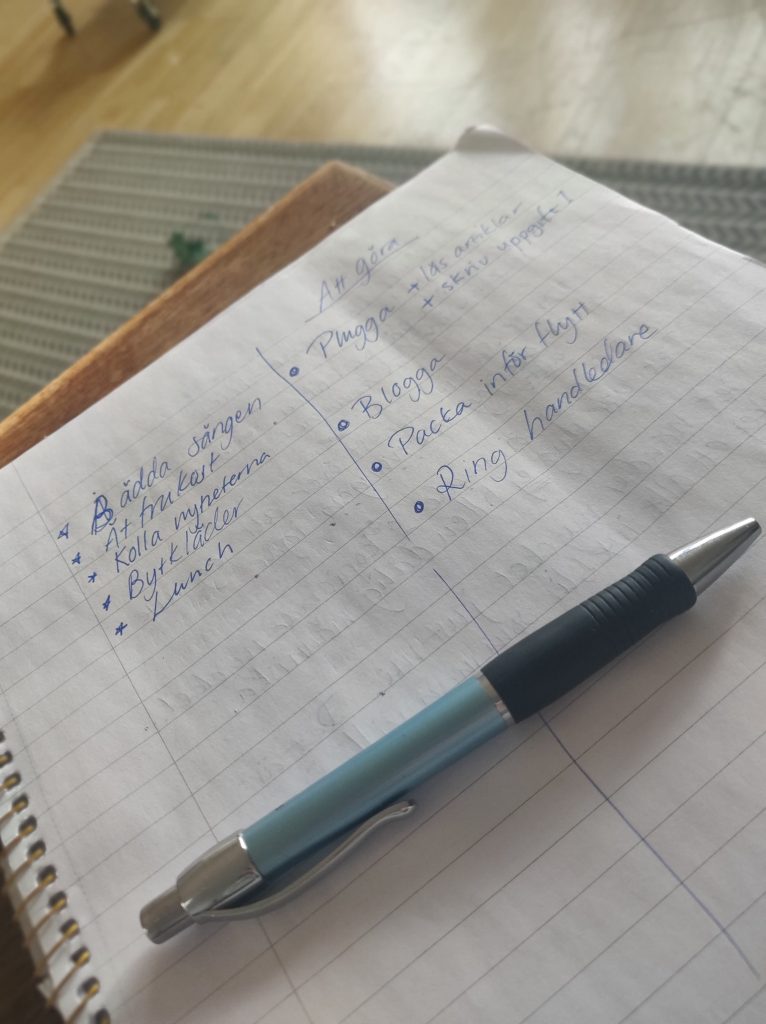 Att göra
• Plugga + läs artiklar
+ skriv uppgift 1
• Blogga
• Packa inför flytt
• Ring handledare
* Bädda sängen
* Ät frukost
* Kolla nyheterna
* Byt kläder
* Lunch